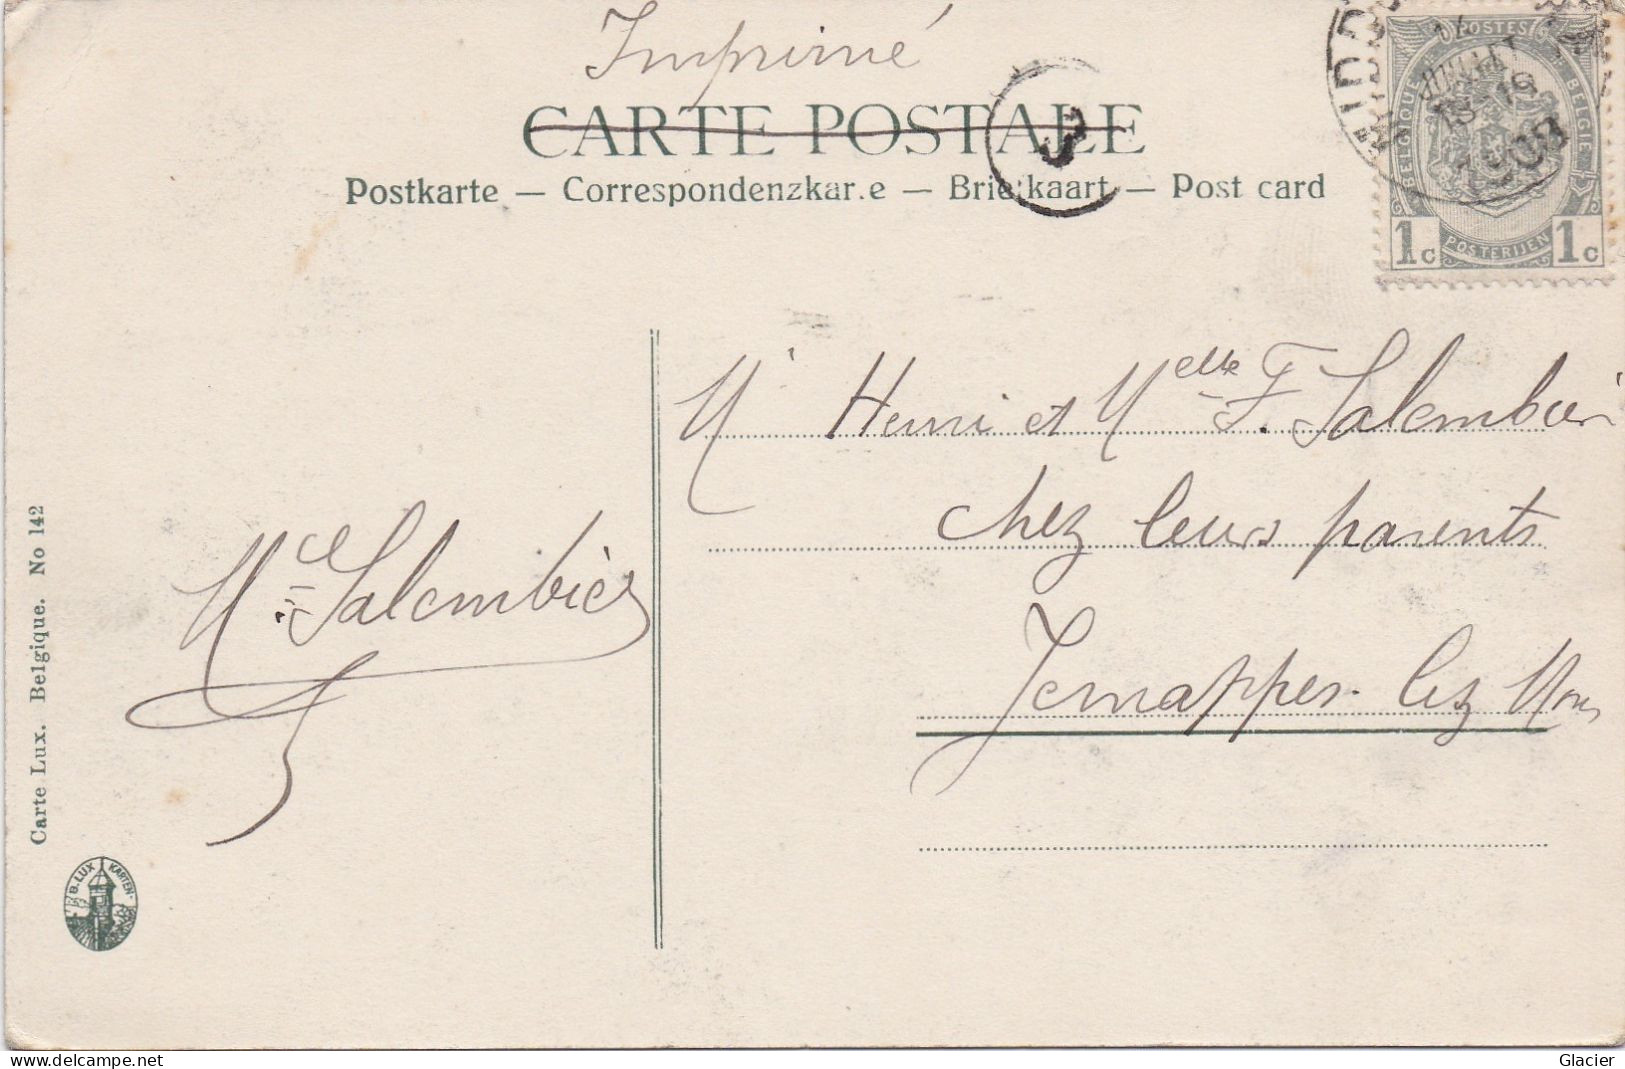 Imprimé
CARTE POSTALE
Postkarte — Correspondenzkar.e — Briefkaart — Post card
POSTES
BELGIQUE BELGIE
1c POSTERIJEN 1c
JUILLET
18-19
1908
3
Mr Henri et Melle F. Salembier
chez leurs parents
Jemappes lez Mons
Me Salembier
Carte Lux. Belgique. No 142
B. LUX KARTEN
delcampe.net
Glacier